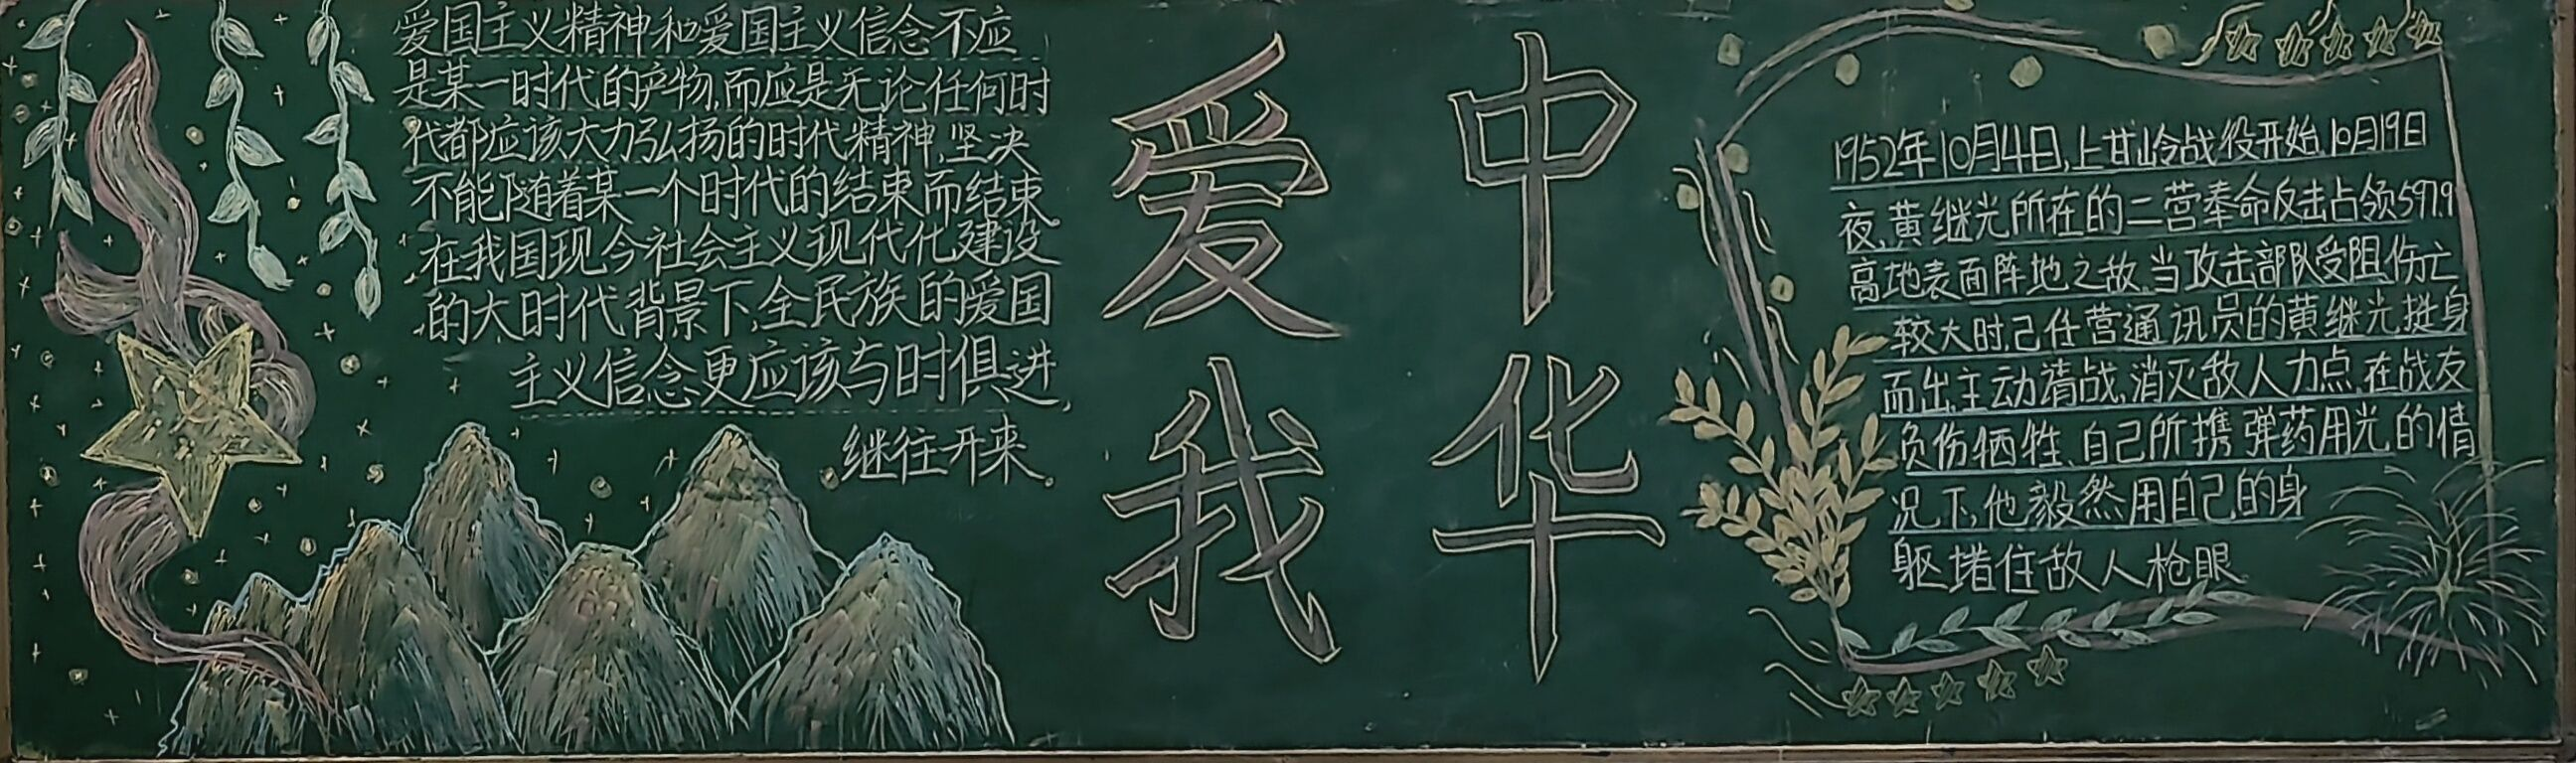 爱国主义精神和爱国主义信念不应
是某一时代的产物,而应是无论任何时
代都应该大力弘扬的时代精神,坚决
不能随着某一个时代的结束而结束。
在我国现今社会主义现代化建设
的大时代背景下,全民族的爱国
主义信念更应该与时俱进,
继往开来。
爱我
中华
1952年10月4日,上甘岭战役开始,10月19日
夜,黄继光所在的二营奉命反击占领597.9
高地表面阵地之敌,当攻击部队受阻,伤亡
较大时,己任营通讯员的黄继光挺身
而出,主动请战,消灭敌人力点,在战友
负伤牺牲、自己所携弹药用光的情
况下,他毅然用自己的身
躯堵住敌人枪眼